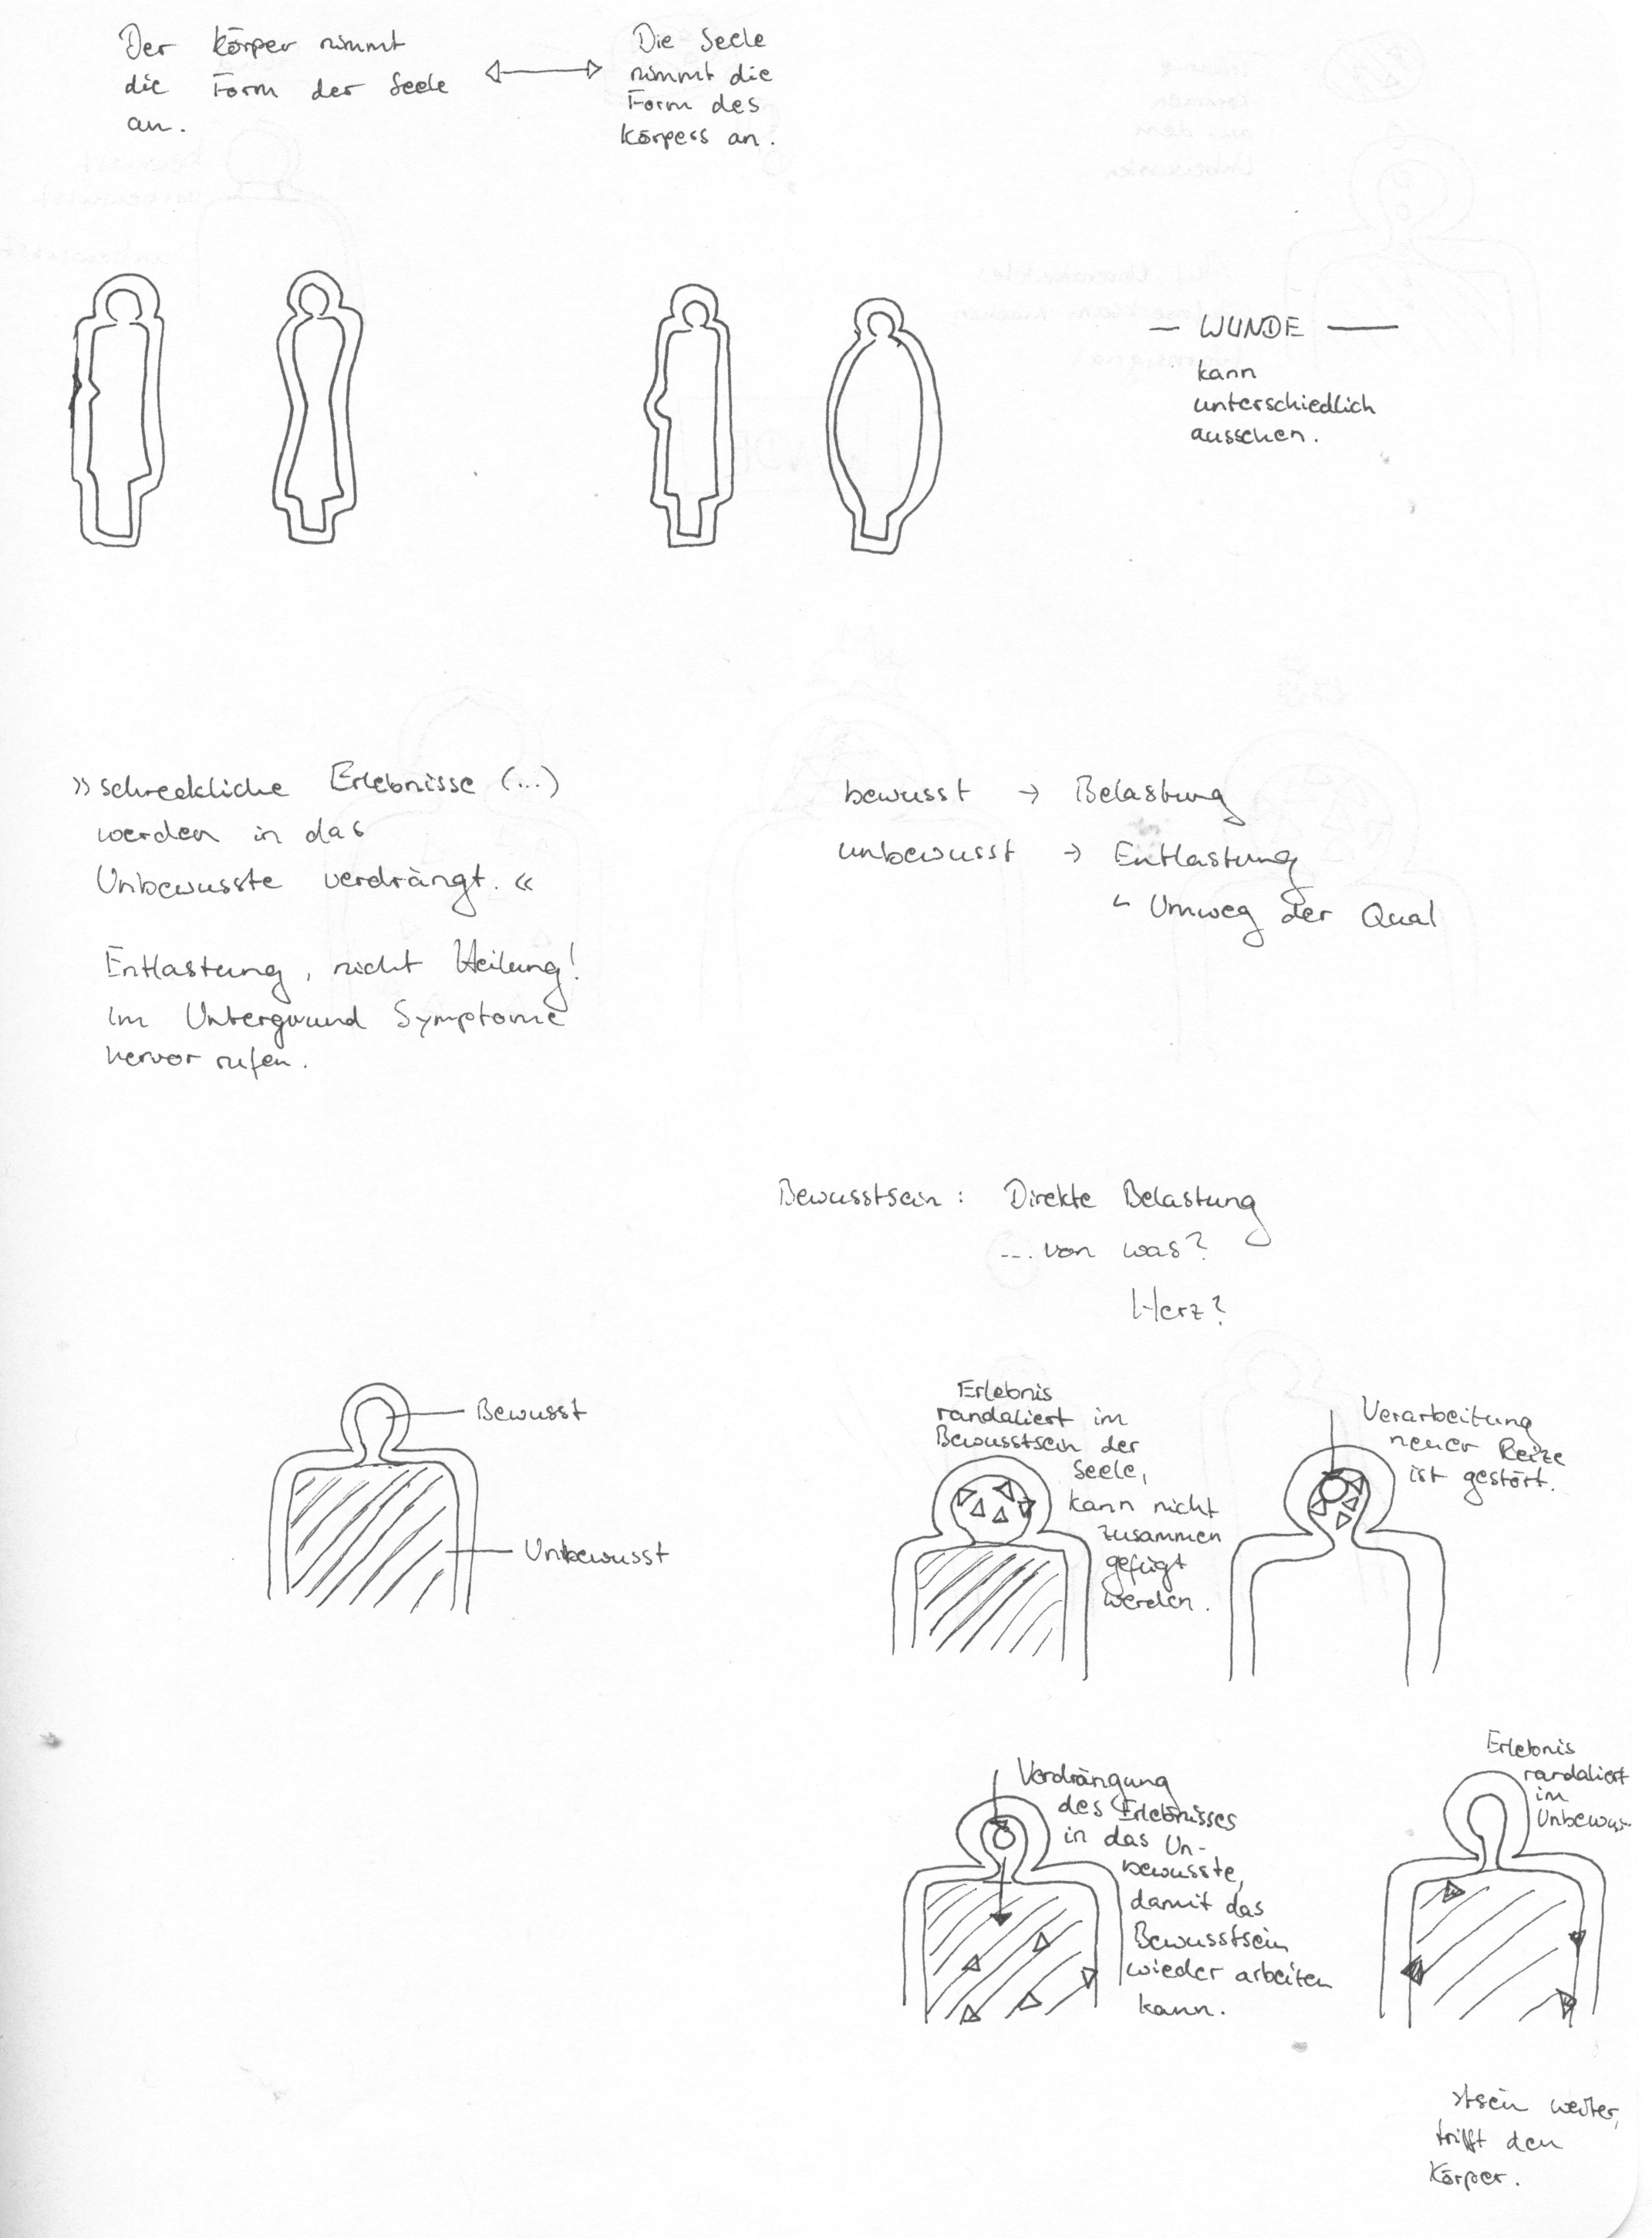 Der Körper nimmt
die Form der Seele
an.
Die Seele
nimmt die
Form des
Körpess an.
— WUNDE —
kann
unterschiedlich
aussehen.
»schreckliche Erlebnisse (...)
werden in das
Unbewusste verdrängt.«
Entlastung, nicht Heilung!
Im Untergrund Symptome
hervor rufen.
bewusst → Belastung
unbewusst → Entlastung
↳ Umweg der Qual
Bewusstsein: Direkte Belastung
... von was?
Herz?
Bewusst
Unbewusst
Erlebnis
randaliert im
Bewusstsein der
Seele,
kann nicht
zusammen
gefügt
werden.
Verarbeitung
neuer Reize
ist gestört.
Verdrängung
des Erlebnisses
in das Un-
bewusste,
damit das
Bewusstsein
wieder arbeiten
kann.
Erlebnis
randaliert
im
Unbewus-
stsein weiter,
trifft den
Körper.